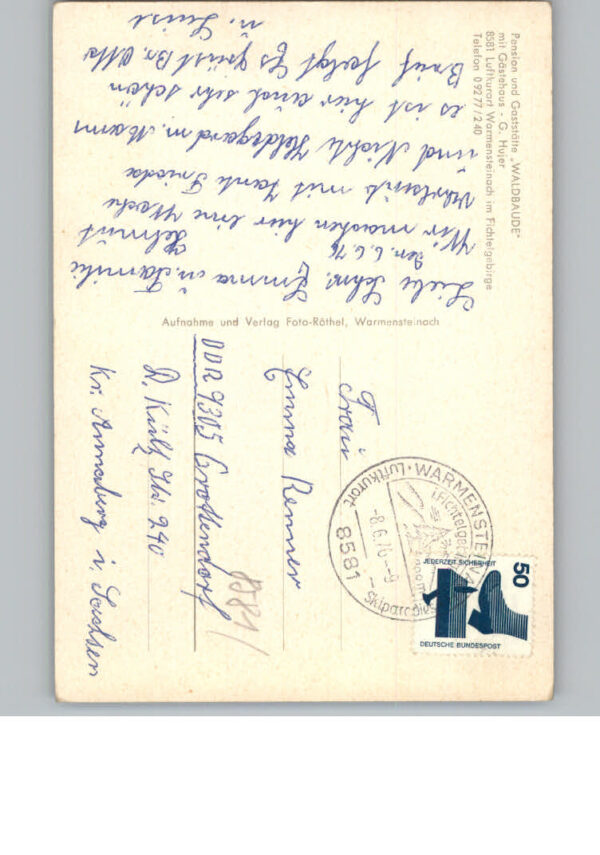 Pension und Gaststätte „WALDBAUDE"
mit Gästehaus · G. Hujer
8581 Luftkurort Warmensteinach im Fichtelgebirge
Telefon 09277/240
den. 6.6.76
Liebe Schw. Emma u. Familie
Helmut
Wir machen hier eine Woche
Urlaub mit Tante Frieda
und Nichte Hildegard m. Mann
es ist hier auch sehr schön
Brief folgt Es grüßt Br. Otto
u. Luise
Aufnahme und Verlag Foto-Röthel, Warmensteinach
Frau
Emma Renner
DDR 9305 Crottendorf
R. Külz Str. 240
Kr. Annaberg i. Sachsen
8581
WARMENSTEINACH
i. Fichtelgeb.
Luftkurort
-8.6.76-9
8581
Skiparadies
JEDERZEIT SICHERHEIT
50
DEUTSCHE BUNDESPOST